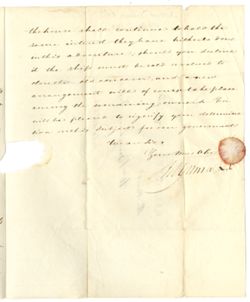 the house shall continue to hold the
same interest they have hitherto done
in this adventure; should you decline
it the ship must be sold
and a new
arrangement will of course take place
among the remaining owners. You
will be pleased to signify your determina
tion on this subject for our government
We are &c
Your Mo. Ob.